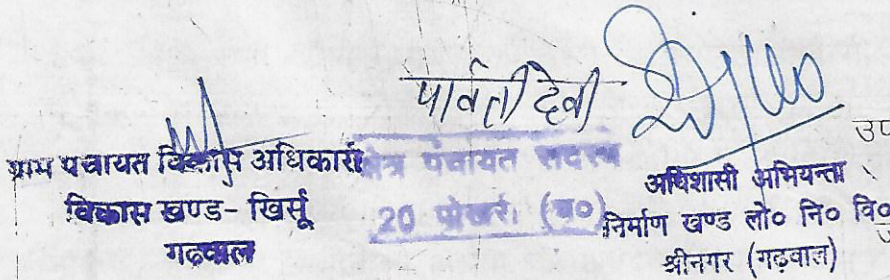 पार्वती देवी
ग्राम पंचायत विकास अधिकारी
विकास खण्ड- खिर्सू
गढ़वाल
क्षेत्र पंचायत सदस्य
20 पोखरी (च०)
उप
अधिशासी अभियन्ता
निर्माण खण्ड लो० नि० वि०
श्रीनगर (गढ़वाल)